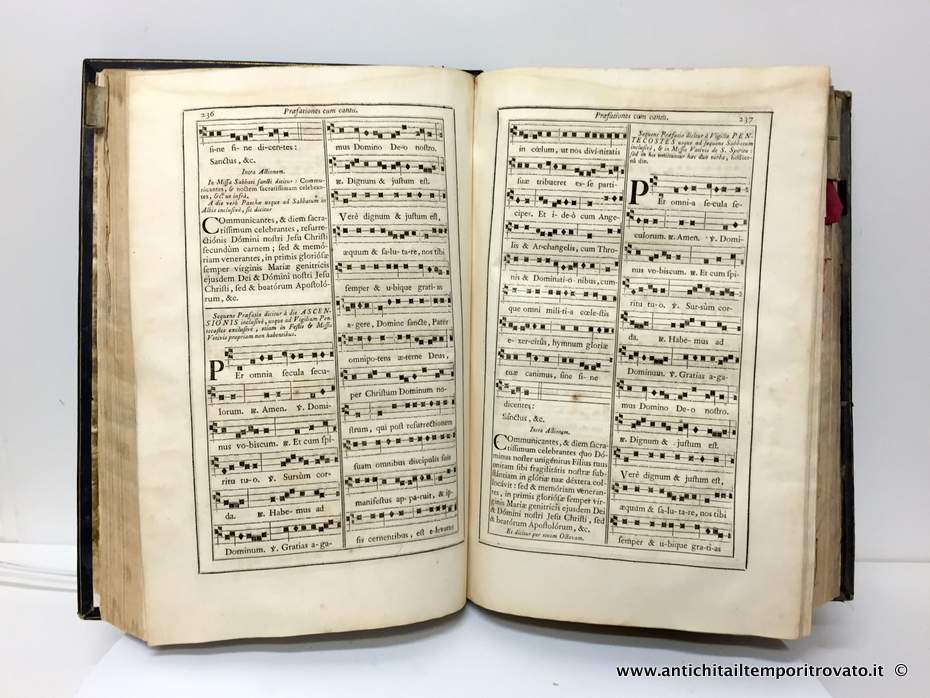 236
Præfationes cum cantu.
si-ne fi- ne di-cen-tes:
Sanctus, &c.
Intra Actionem.
In Missa Sabbati sancti dicitur: Commu-
nicantes, & noctem sacratissimam celebran-
tes, &c. ut infrà.
A die verò Paschæ usque ad Sabbatum in
Albis inclusivè, sic dicitur
COmmunicantes, & diem sacra-
tissimum celebrantes, resurre-
ctiónis Dómini nostri Jesu Christi
secundùm carnem; sed & memó-
riam venerantes, in primis gloriósæ
semper virginis Mariæ genitrícis
ejusdem Dei & Dómini nostri Jesu
Christi, sed & beatórum Apostoló-
rum, &c.
Sequens Præfatio dicitur à die ASCEN-
SIONIS inclusivè, usque ad Vigiliam Pen-
tecostes exclusivè, etiam in Festis & Missis
Votivis propriam non habentibus.
PEr omnia secula secu-
lorum. ℟. Amen. ℣. Domi-
nus vo-biscum. ℟. Et cum spi-
ritu tu- o. ℣. Sursùm cor-
da. ℟. Habe- mus ad
Dominum. ℣. Gratias a-ga-
mus Domino De-o nostro.
℟. Dignum & justum est.
Verè dignum & justum est,
æquum & sa-lu-ta-re, nos tibi
semper & u-bique grati-as
a-gere, Domine sancte, Pater
omnipo-tens æ-terne Deus,
per Christum Dominum no-
strum, qui post resurrectionem
suam omnibus discipulis suis
manifestus ap-pa-ruit, & ip-
sis cernentibus, est e-levatus
Præfationes cum cantu.
237
in cœlum, ut nos divi-nitatis
suæ tribueret es-se parti-
cipes. Et i- de-ò cum Ange-
lis & Ar-changelis, cum Thro-
nis & Dominati-o nibus, cum-
que omni mili-ti-a cœle-stis
e- xer-citûs, hymnum gloriæ
tuæ canimus, sine fi- ne
dicentes:
Sanctus, &c.
Intra Actionem.
COmmunicantes, & diem sacra-
tissimum celebrantes quo Dó-
minus noster unigénitus Filius tuus
unitam sibi fragilitátis nostræ sub-
stantiam in glóriæ tuæ déxtera col-
locávit: sed & memóriam veneran-
tes, in primis gloriósæ semper vir-
ginis Mariæ genitrícis ejusdem Dei
& Dómini nostri Jesu Christi, sed
& beatórum Apostolórum, &c.
Et dicitur per totam Octavam.
Sequens Præfatio dicitur à Vigilia PEN-
TECOSTES usque ad sequens Sabbatum
inclusivè, & in Missis Votivis de S. Spiritu:
sed in his omittuntur hæc duo verba, hodiér-
nâ die.
PEr omni-a se-cula se-
culorum. ℟. Amen. ℣. Domi-
nus vo-biscum. ℟. Et cum spi-
ritu tu-o. ℣. Sur-sùm cor-
da. ℟. Habe-mus ad
Dominum. ℣. Gratias a-ga-
mus Domino De-o nostro.
℟. Dignum & justum est.
Verè dignum & justum est,
æquum & sa-lu-ta-re, nos tibi
semper & u-bique gra-ti-as
www.antichitailtempoритrovato.it ©